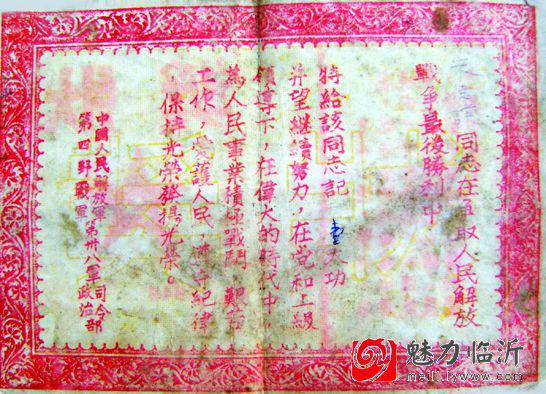 同志在爭取人民解放
戰争最後勝利中
特給該同志記壹大功
并望繼續努力,在党和上級
領導下,在偉大的時代中,
為人民事業積極戰鬥 艱苦
工作,愛護人民,遵守紀律
,保持光榮發揚光榮。
中國人民解放軍
第四野戰軍第卅八軍司令部
政治部
魅力临沂
meili.lywww.com